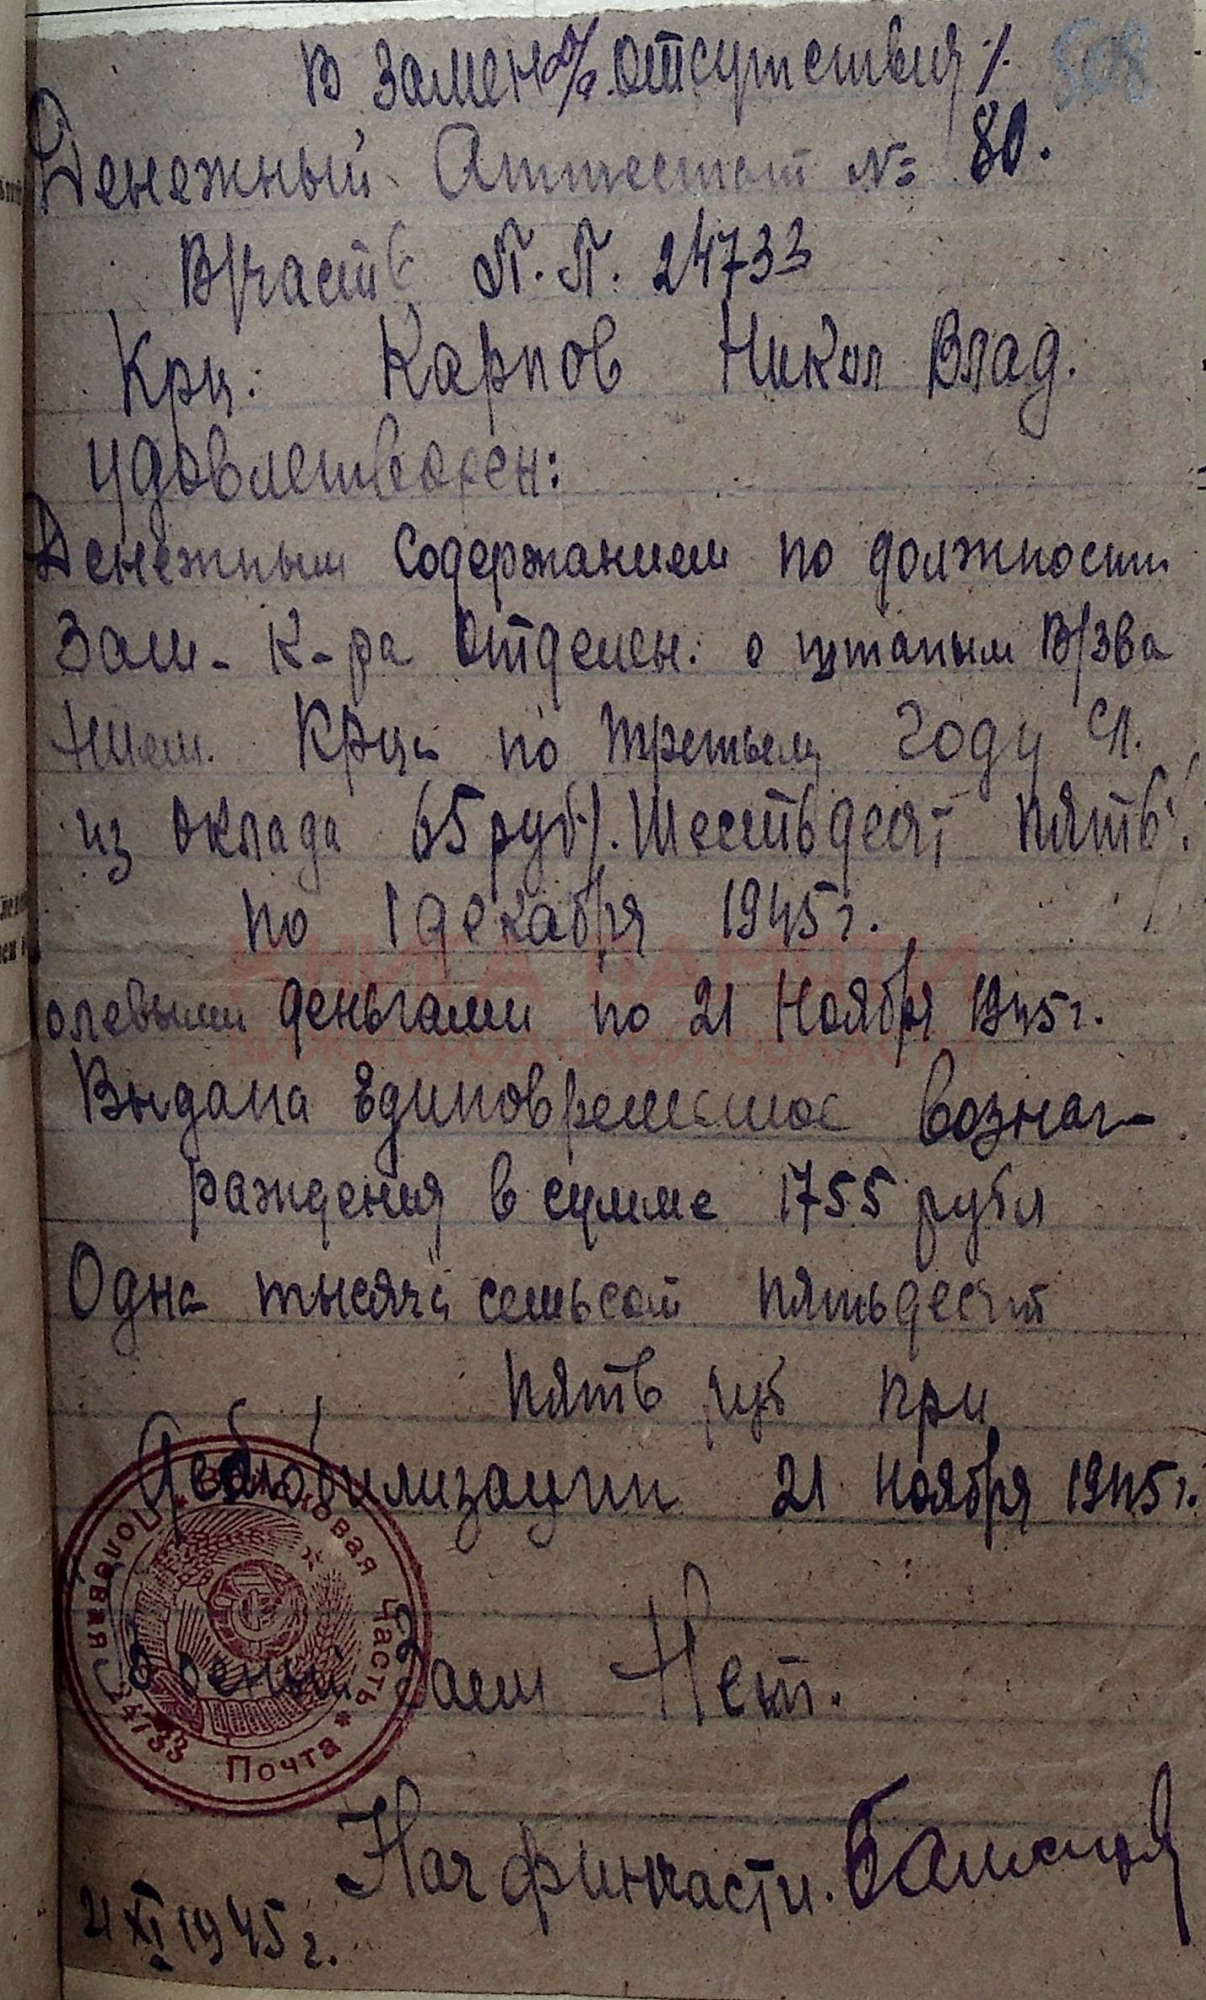 В замен б/а. отсутствия /.
508
Денежный Аттестат № 80.
В/часть П.П. 24733
Крц. Карпов Никол Влад.
удовлетворен:
Денежным содержанием по должности
Зам- К-ра Отделен. о штатным В/зва
нием. Крца по третьему году сл.
из оклада 65 руб/. Шестьдесят пять/.
по 1 декабря 1945 г.
олевыми деньгами по 21 Ноября 1945 г.
Выдана Единовременное вознаг-
раждения в сумме 1755 рубл
Одна тысяча семьсот пятьдесят
пять руб при
Демобилизации 21 ноября 1945 г.
Военный Заем Нет.
Нач финчасти.
21 XI 1945 г.
Войсковая часть * Полевая Почта * 24733
КНИГА ПАМЯТИ
НИЖЕГОРОДСКОЙ ОБЛАСТИ